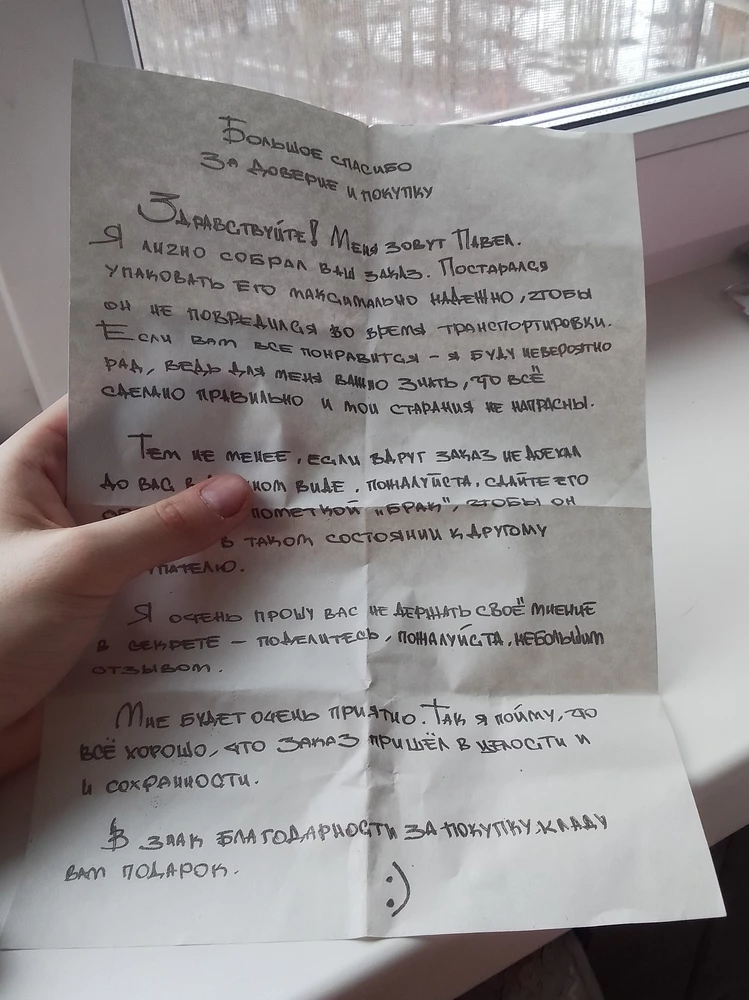 Большое спасибо
за доверие и покупку
Здравствуйте! Меня зовут Павел.
Я лично собрал ваш заказ. Постарался
упаковать его максимально надежно, чтобы
он не повредился во время транспортировки.
Если вам все понравится - я буду невероятно
рад, ведь для меня важно знать, что всё
сделано правильно и мои старания не напрасны.
Тем не менее, если вдруг заказ не доехал
до вас в ном виде, пожалуйста, сдайте его
об пометкой "брак", чтобы он
в таком состоянии к другому
упателю.
Я очень прошу вас не держать своё мнение
в секрете - поделитесь, пожалуйста, небольшим
отзывом.
Мне будет очень приятно. Так я пойму, что
всё хорошо, что заказ пришёл в целости и
и сохранности.
В знак благодарности за покупку, кладу
вам подарок.
:)